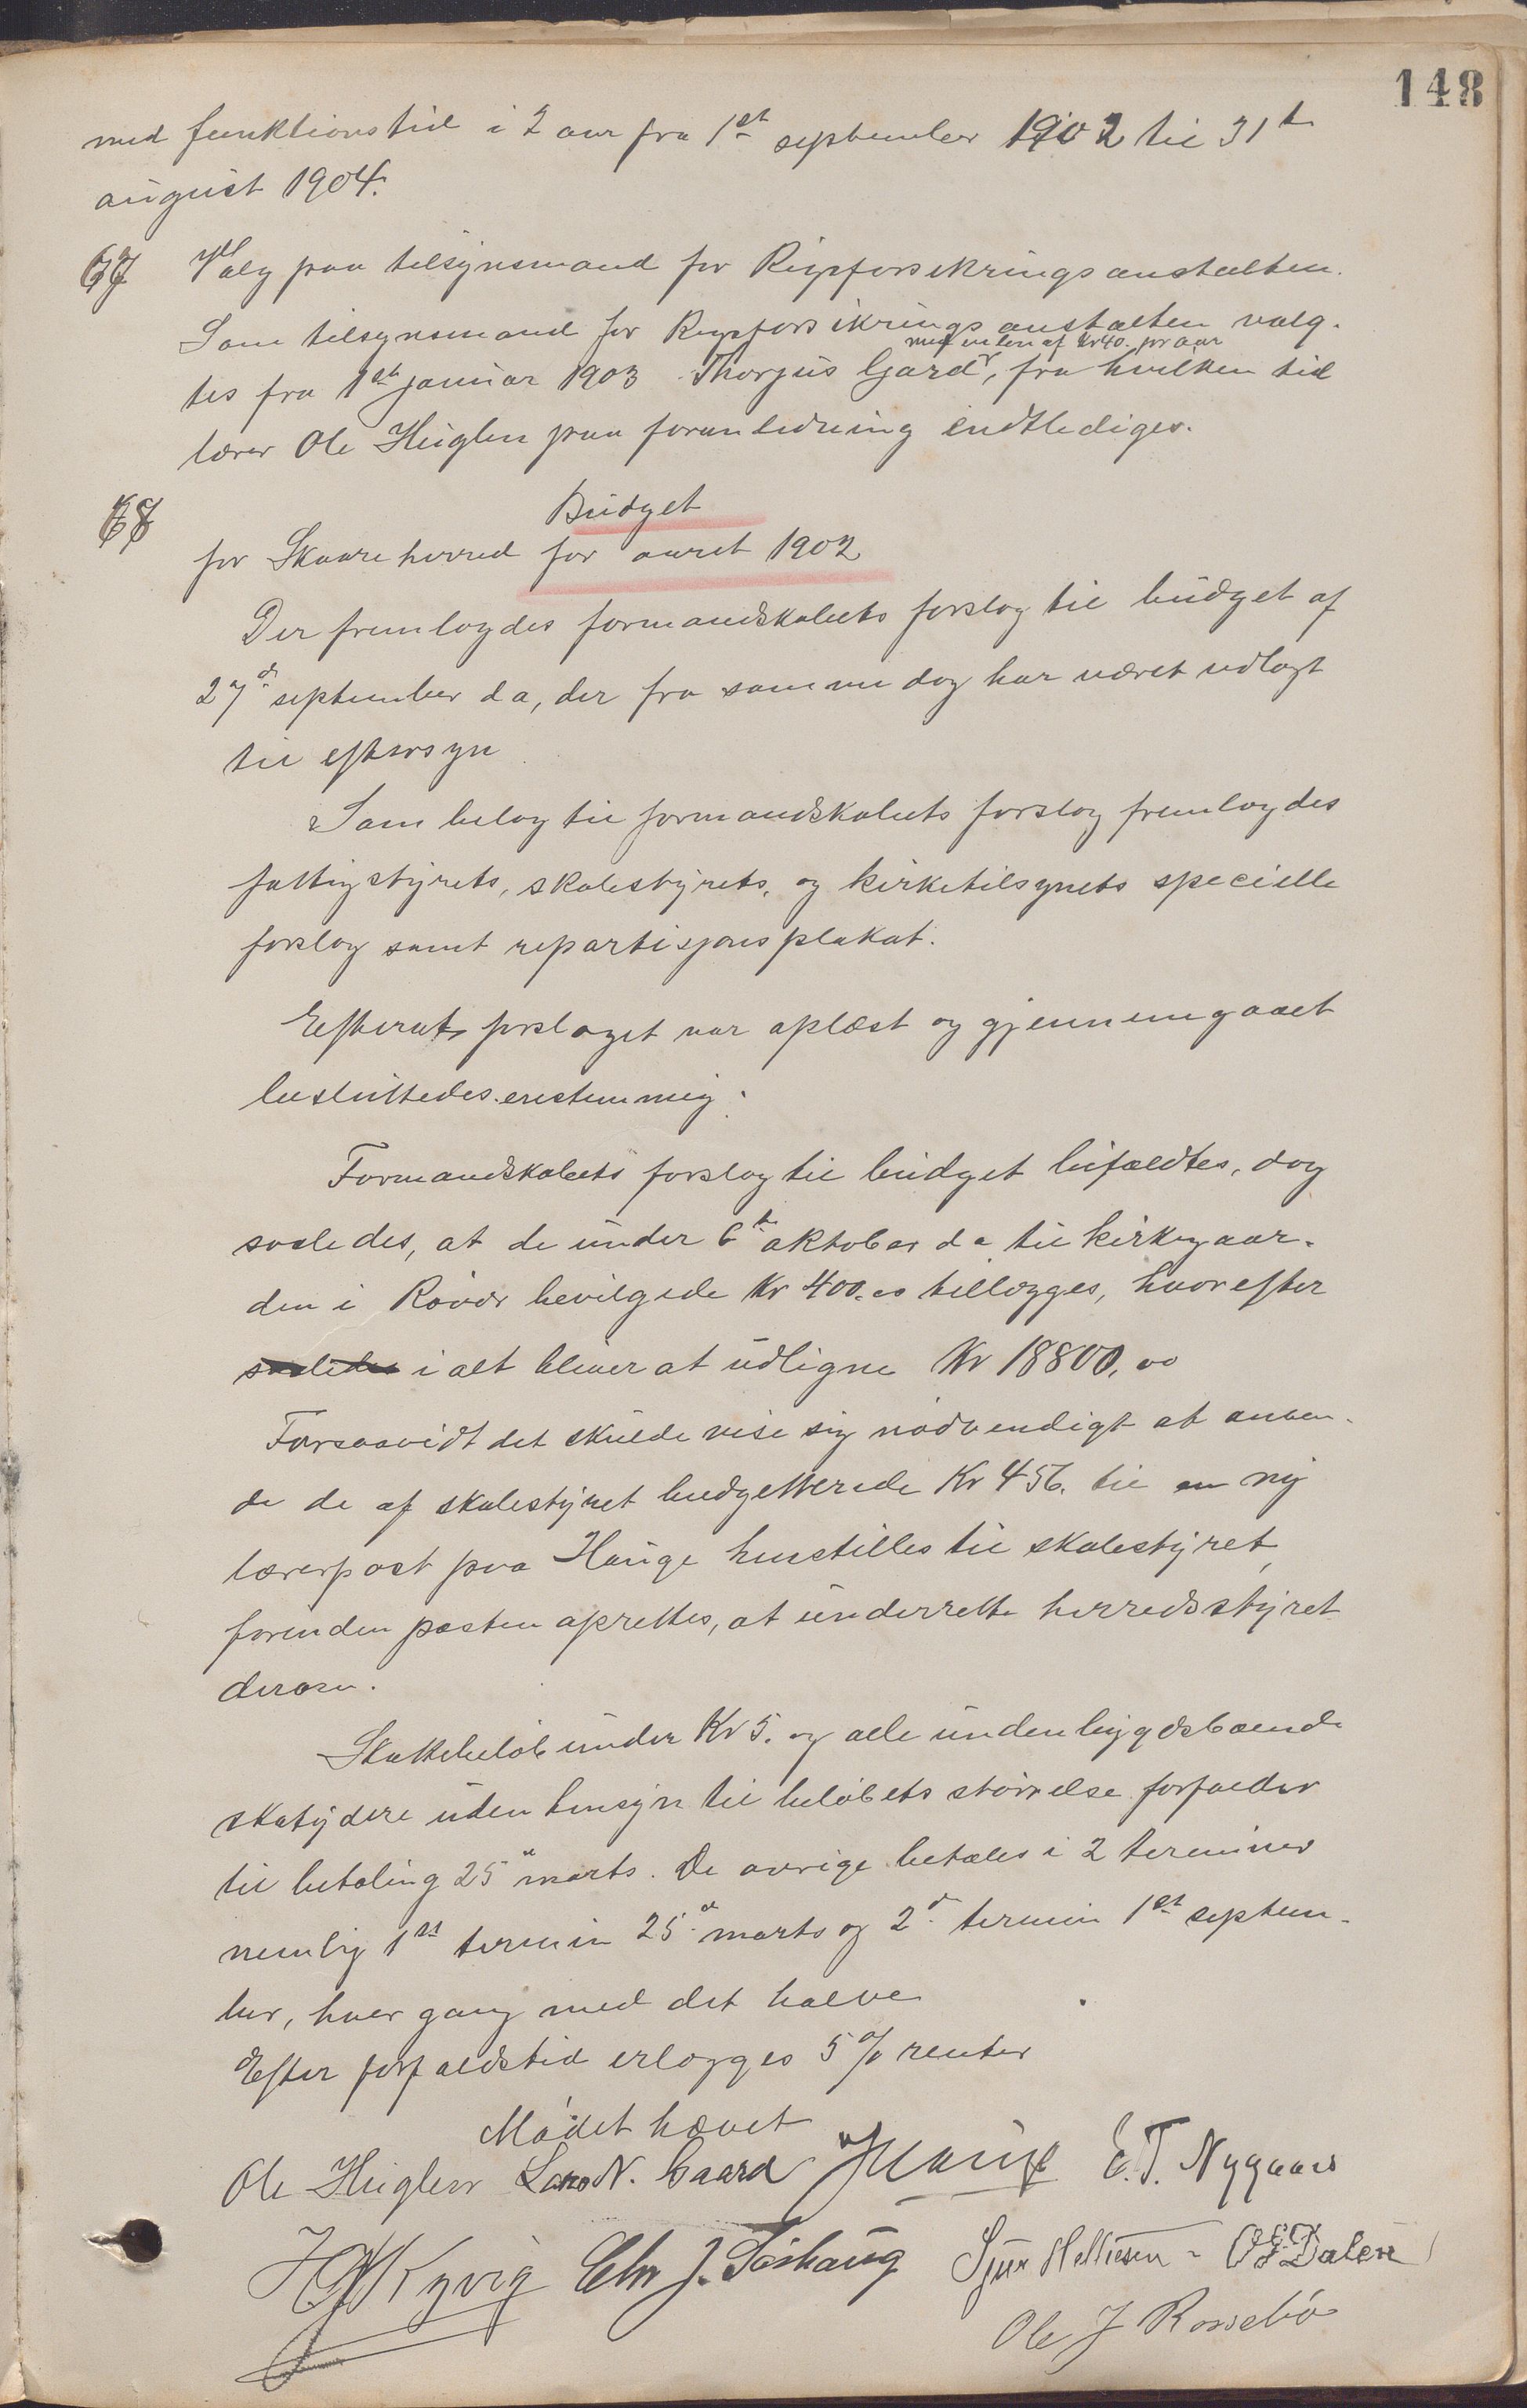 148
med funktionstid i 2 aar fra 1st september 1902 til 31te
august 1904.
67 Valg paa tilsynsmand for Rigsforsikringsanstalten.
Som tilsynsmand for Rigsforsikringsanstalten valg-
med en løn af kr 40. pr aar
tes fra 1ste januar 1903 Thorjus Gard, fra hvilken tid
lærer Ole Huglen paa foranledning endtlediges.
68 Budget
for Skaare herred for aaret 1902
Der fremlagdes formandskabets forslag til budget af
27de september d a, der fra samme dag har været udlagt
til eftersyn
Som belag til formandskabets forslag fremlagdes
fattigstyrets, skolestyrets, og kirketilsynets specielle
forslag samt repartisjonsplakat.
Efterat forslaget var oplæst og gjennemgaaet
besluttedes enstemmig:
Formandskabets forslag til budget bifaldtes, dog
saaledes, at de under 6te oktober d a til kirkegaar-
den i Røvær bevilgede Kr 400.00 tillægges, hvorefter
saaledes i alt bliver at udligne Kr 18800,00
Forsaavidt det skulde vise sig nødvendigt at anven-
de de af skolestyret budgetterede Kr 456. til en ny
lærerpost paa Hauge henstilles til skolestyret,
forinden posten oprettes, at underrette herredsstyret
derom.
Skattebeløb under Kr 5. og alle udenbygdsboende
skatydere uden hensyn til beløbets størrelse forfalder
til betaling 25de marts. De øvrige betales i 2 terminer
nemlig 1ste termin 25de marts og 2den termin 1ste septem-
ber, hver gang med det halve
Efter forfaldstid erlægges 5 % renter
Mødet hævet
Ole Huglen Lars N. Gaard J Hauge E. T. Nygaard
Kyvig Chr J. Sørhaug Sjur Helliesen - Dalen
Ole J Rossebø